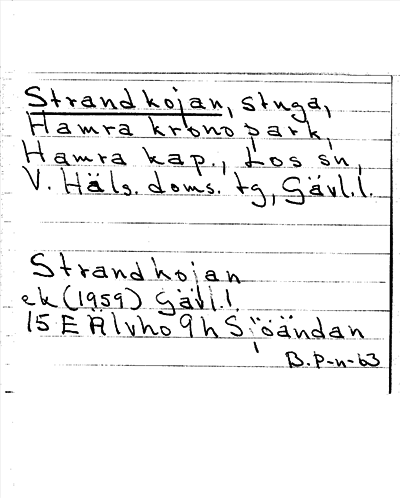 Strandkojan, stuga,
Hamra kronopark,
Hamra kap., Los sn,
V. Häls. doms. tg, Gävl.l.
Strandkojan
ek (1959) Gävl.l.
15 E Älvho 9 h Sjöändan
B. P-n-63